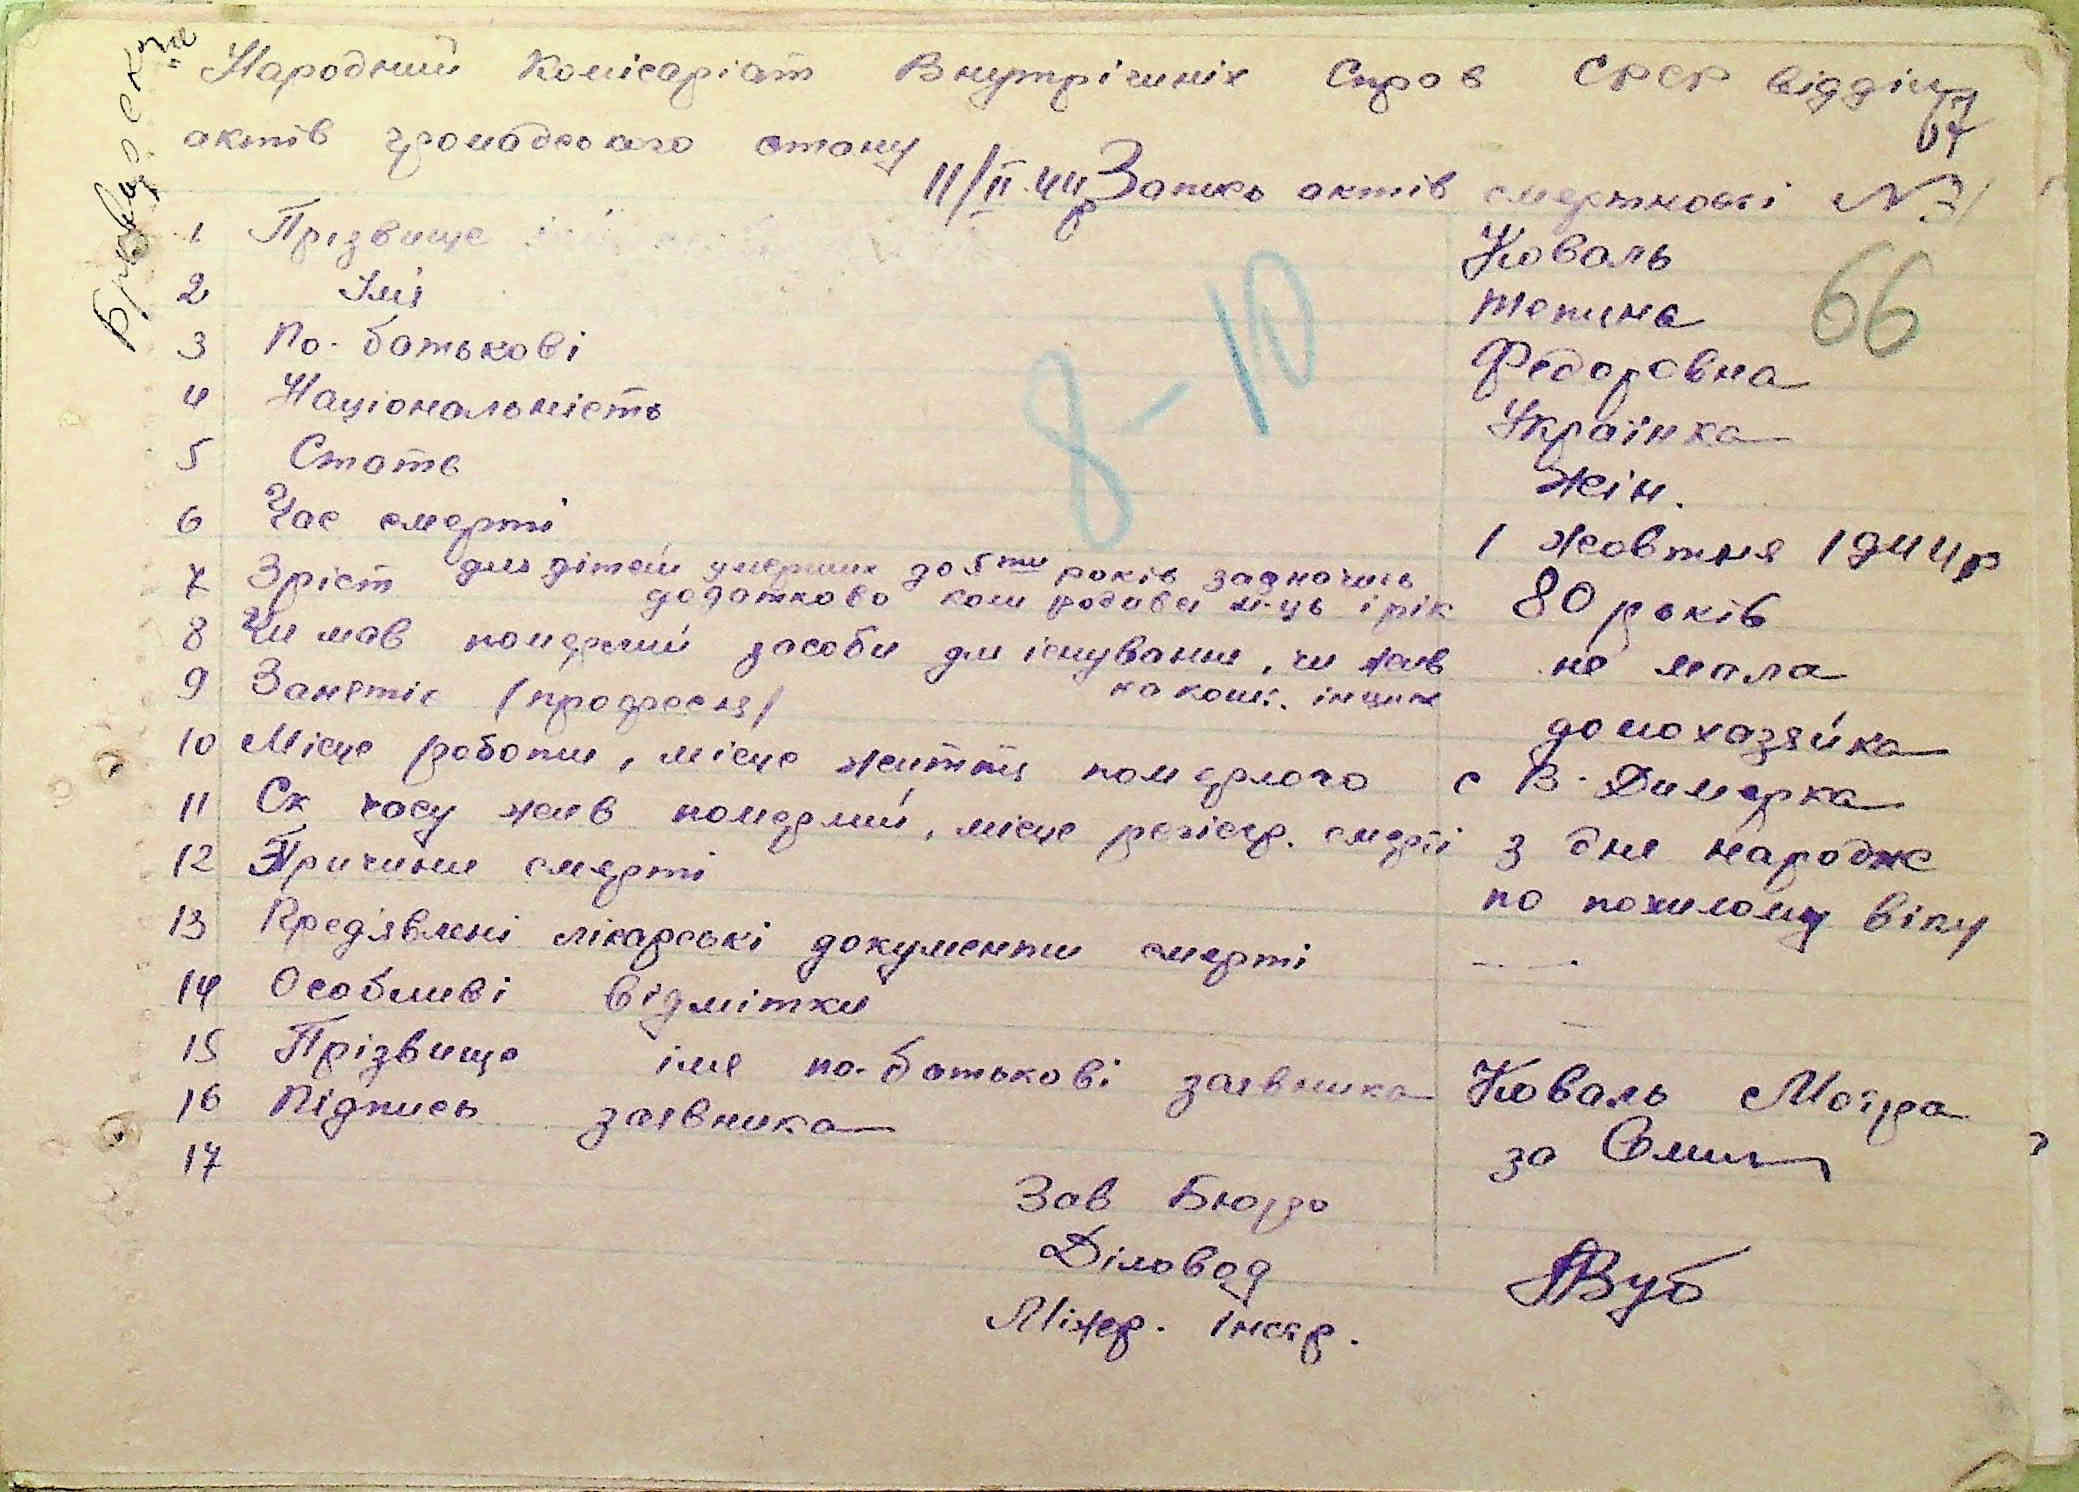 Народний Комісаріат Внутрішніх Справ СРСР відділ
актів громадського стану
67
11/II.44р Запись актів смертності №
1 Прізвище Коваль
66
2 Імя Тетина
8-10
3 По-батькові Федоровна
4 Національність Українка
5 Стать жін.
6 Час смерті 1 жовтня 1944р
7 Зріст для дітей умерших до 5ти років зазначись
додатково коли родився м-ць і рік 80 років
8 Чи мав померший засоби для існування, чи жив не мала
на кошт. інших
9 Заняття /професія/ домохазяйка
10 Місце роботи, місце життя померлого с В-Димерка
11 Ск часу жив померлий, місце регістр. смерті з дня народж
12 Причини смерті по похилому віку
13 Предявлені лікарські документи смерті —
14 Особливі відмітки —
15 Прізвище імя по-батькові заявника Коваль Мотря
16 Підпись заявника за
17
Зав Бюро
Діловод
Міжр. інспр.